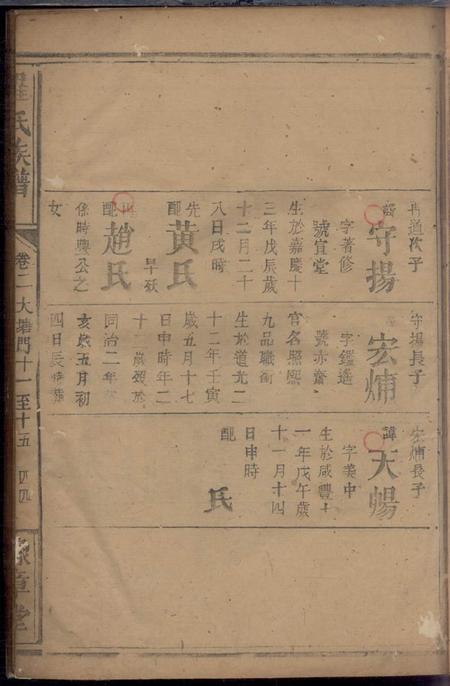 冉道次子
諱守揚
字著修
號宜堂
生於嘉慶十
三年戊辰歲
十二月二十
八日戌時
先配黃氏
早歿
配趙氏
係時豐公之
女
守揚長子
宏煏
字鑑遙
號亦齋
官名照熙
九品職銜
生於道光二
十二年壬寅
歲五月十七
日申時年二
十二歲歿於
同治二年
癸亥五月初
四日辰時葬
宏煏長子
諱天暢
字美中
生於咸豐十
一年戊午歲
十一月十四
日申時
配氏
氏族譜
卷二大塘門十一至十五 四四
豫章堂